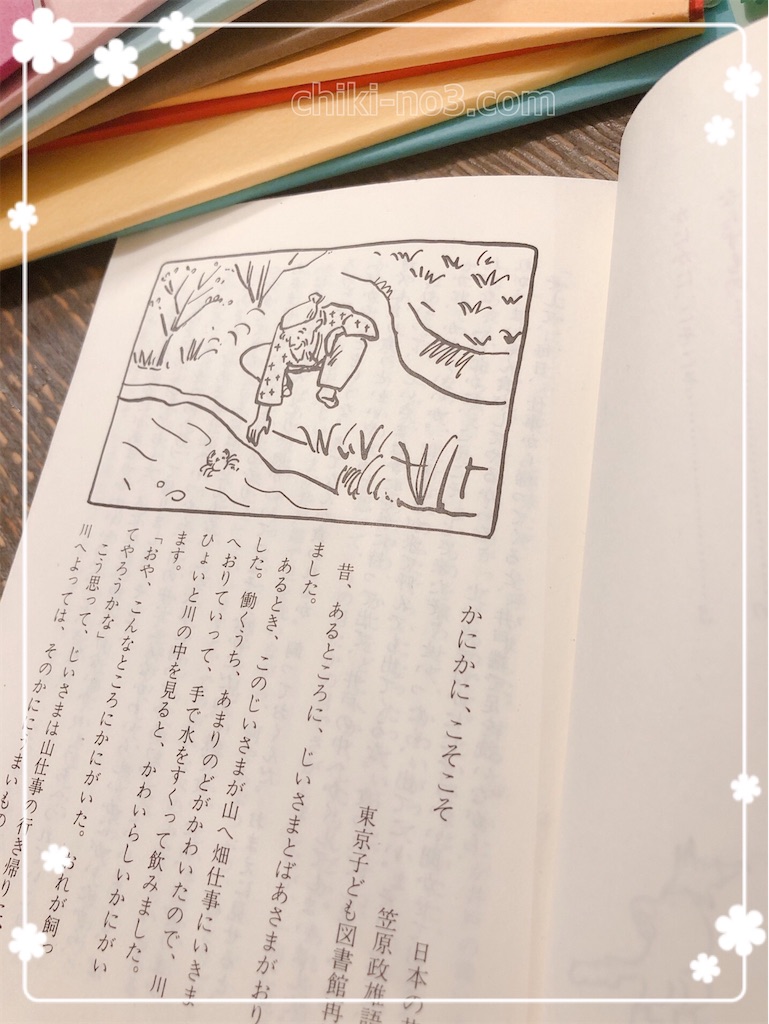 chiki-no3.com
かにかに、こそこそ
日本の
笠原政雄語
東京子ども図書館再
昔、あるところに、じいさまとばあさまがおり
ました。
あるとき、このじいさまが山へ畑仕事にいきま
した。働くうち、あまりのどがかわいたので、川
へおりていって、手で水をすくって飲みました。
ひょいと川の中を見ると、かわいらしいかにがい
ます。
「おや、こんなところにかにがいた。おれが飼っ
てやろうかな」
こう思って、じいさまは山仕事の行き帰りに、
川へよっては、そのかににうまいもの